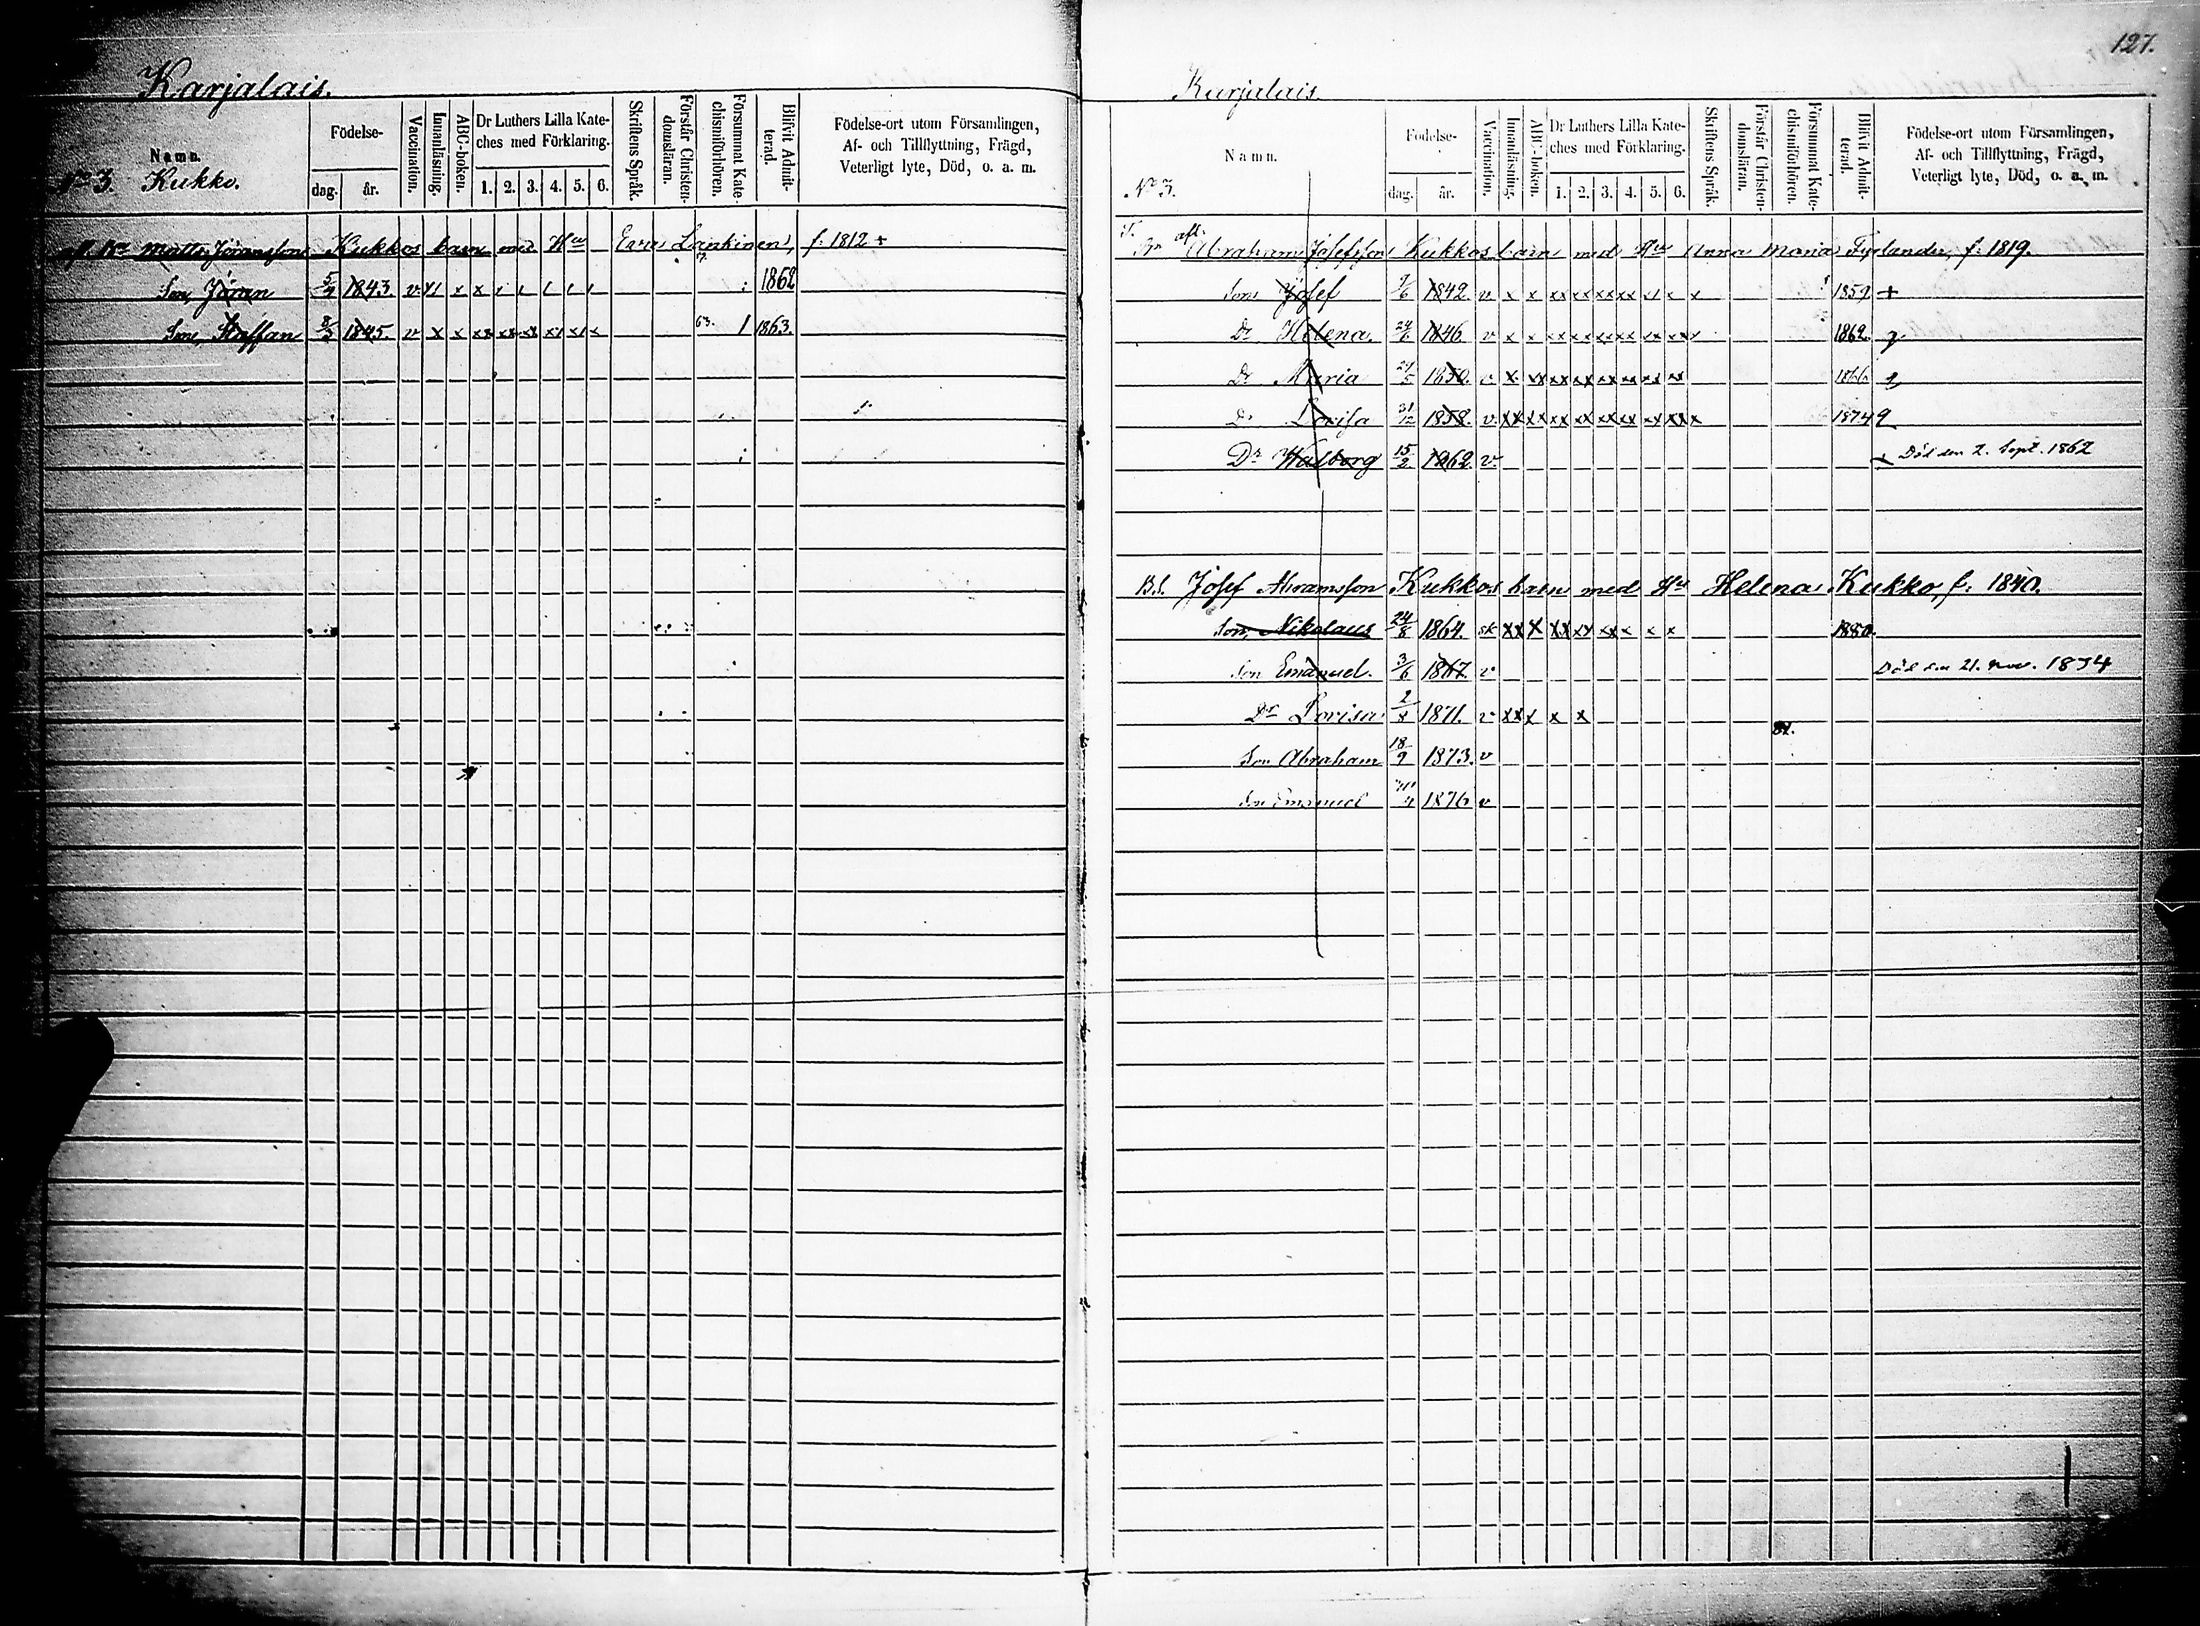 127.
Karjalais.
Namn.
No 3. Kukko.
Födelse-
dag. år.
Vaccination.
Innanläsning.
ABC-boken.
Dr Luthers Lilla Kate-
ches med Förklaring.
1. 2. 3. 4. 5. 6.
Skriftens Språk.
Förstår Christen-
domsläran.
Försummat Kate-
chismiförhören.
Blifvit Admit-
terad.
Födelse-ort utom Församlingen,
Af- och Tillflyttning, Frägd,
Veterligt lyte, Död, o. a. m.
Matts Jöransson Kukkos barn med Hu Eeva Lankinen, f. 1812 +
Son, Jöran 5/4 1843. v. x x x 1862
Son, Staffan 8/5 1845. v x x xx xx xx xx xx x 63. 1 1863.
Karjalais
Namn.
No 3.
Födelse-
dag. år.
Vaccination.
Innanläsning.
ABC-boken.
Dr Luthers Lilla Kate-
ches med Förklaring.
1. 2. 3. 4. 5. 6.
Skriftens Språk.
Förstår Christen-
domsläran.
Försummat Kate-
chismiförhören.
Blifvit Admit-
terad.
Födelse-ort utom Församlingen,
Af- och Tillflyttning, Frägd,
Veterligt lyte, Död, o. a. m.
afl. Abraham Josefsson Kukkos barn med Hu Anna Maria Fyrlander, f. 1819.
Son Josef 1842. v x x xx xx xx xx x 1859 +
Dr Helena 1846. v x x xx xx xx xx xx xx 1862. g
Dr Maria 1850. v x xx xx xx xx xx xx xx 1866
Dr Lovisa 31/12 1858. v. xx xx xx xx xx xx xx xx x 1874 g
Dr Walborg 15/2 1862. v. + Död den 2. Sept. 1862
B.S. Josef Abramsson Kukkos barn med Hu Helena Kukko, f. 1840.
Son, Nikolaus 24/8 1864. sk xx x xx xx xx x x x 1880.
Son Emanuel. 3/6 1867. v Död den 21. nov. 1874
Dr Lovisa 2/8 1871. v xx x x x
81.
Son Abraham 18/9 1873. v
Son Emanuel 1876 v